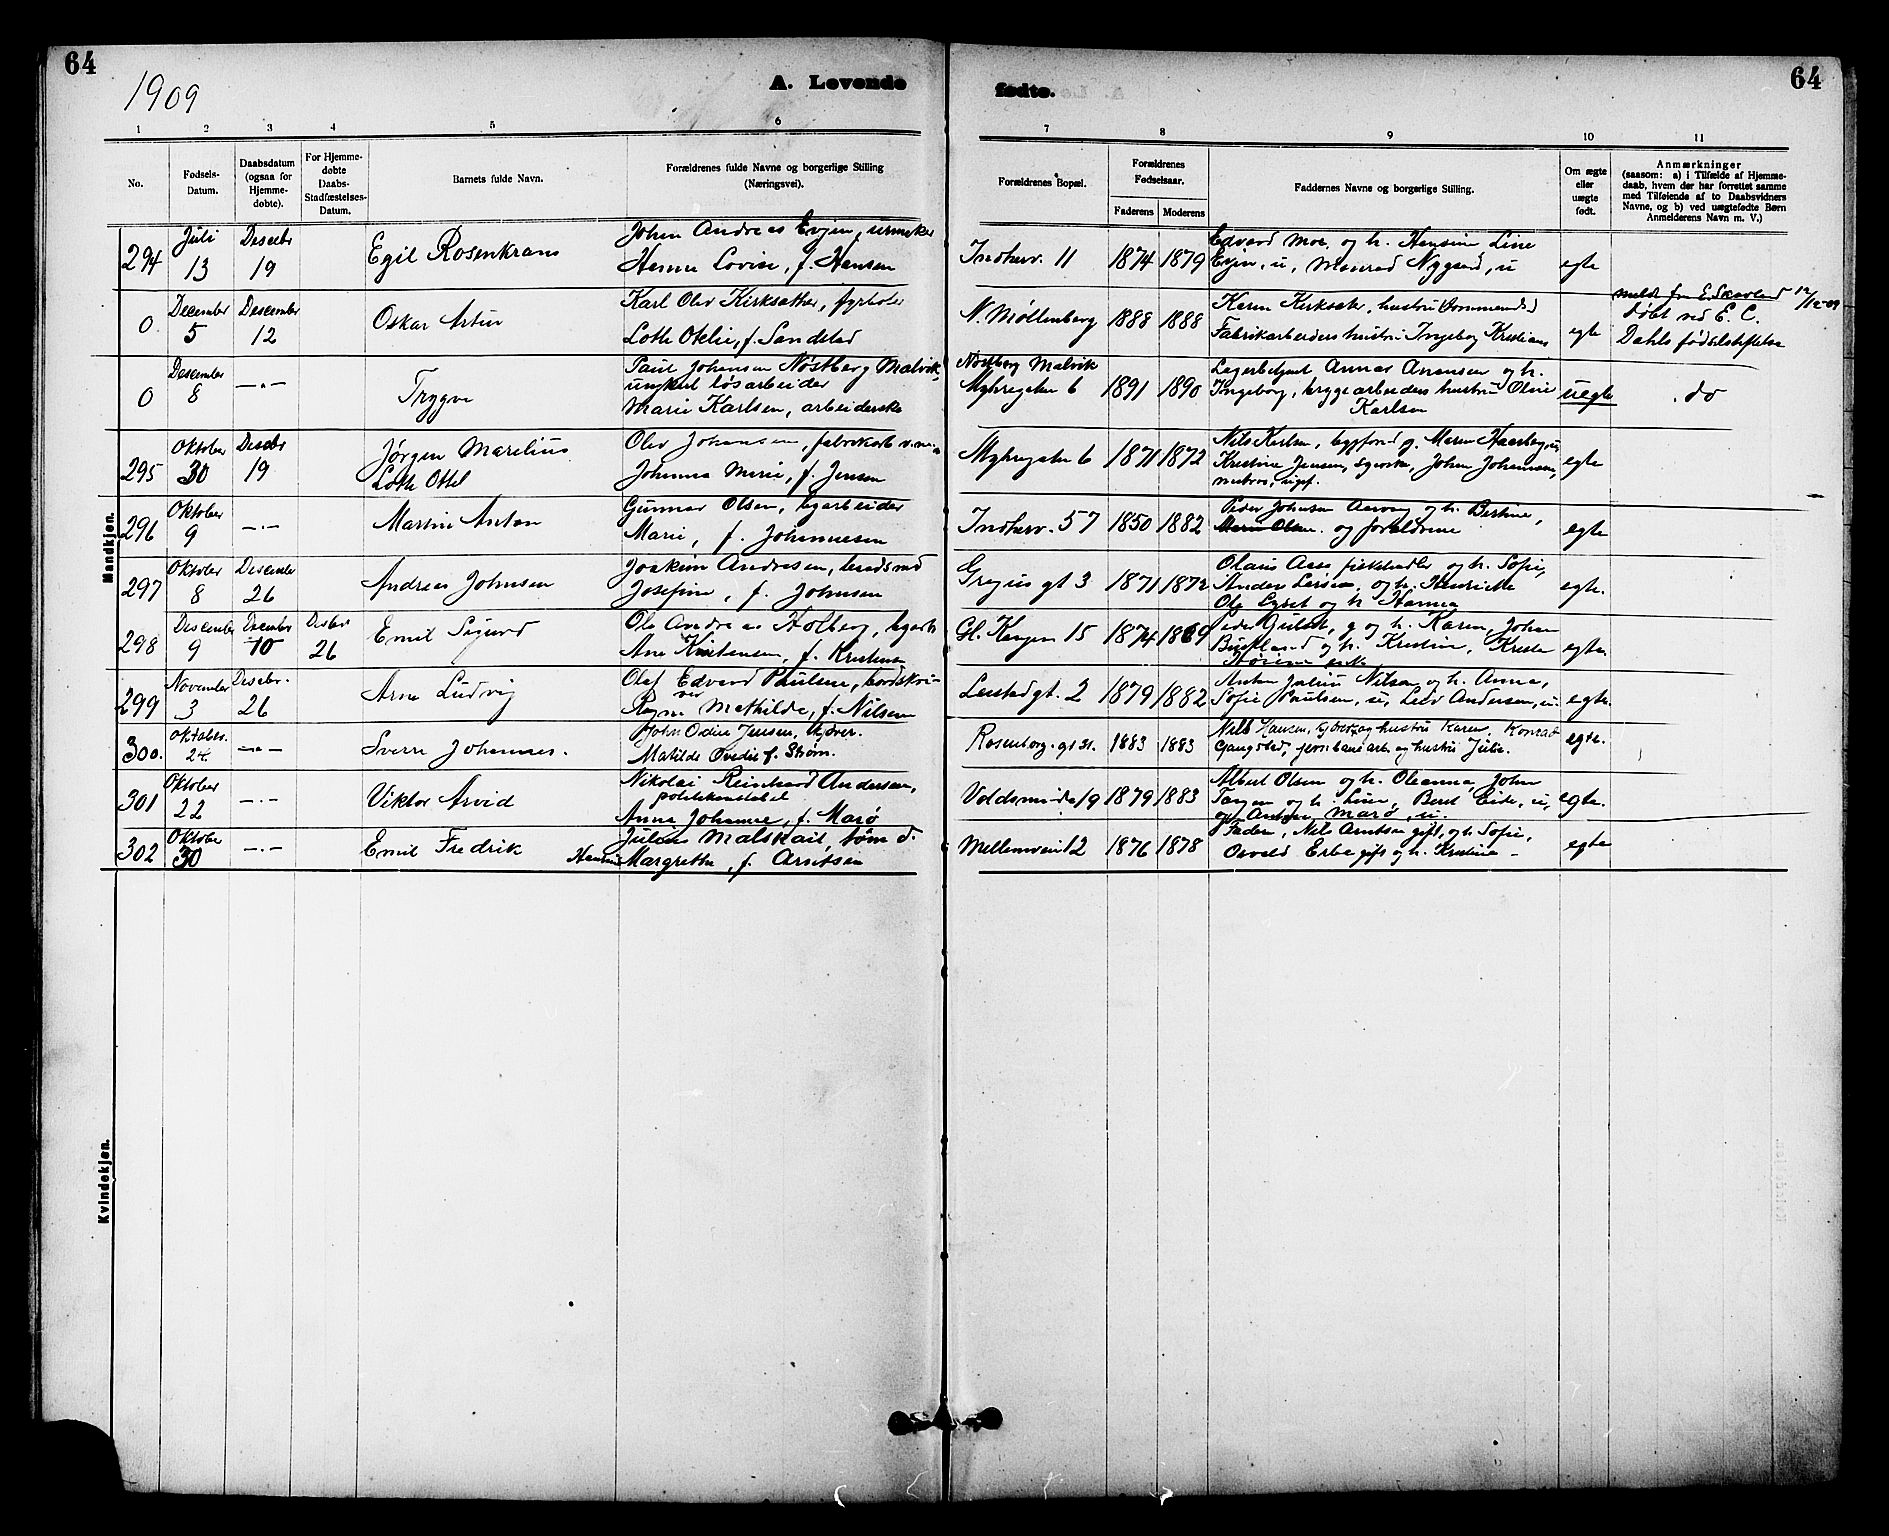 64
1909
A. Levende
fødte.
64
1 2 3 4 5 6 7 8 9 10 11
No.
Fødsels-Datum.
Daabsdatum (ogsaa for Hjemme-døbte).
For Hjemme-døbte Daabs-Stadfæstelses-Datum.
Barnets fulde Navn.
Forældrenes fulde Navne og borgerlige Stilling (Næringsvei).
Forældrenes Bopæl.
Forældrenes Fødselsaar.
Faderens Moderens
Faddernes Navne og borgerlige Stilling.
Om ægte eller uægte født.
Anmærkninger
(saasom: a) i Tilfælde af Hjemme-
daab, hvem der har forrettet samme
med Tilføiende af to Daabsvidners
Navne, og b) ved uægtefødte Børn
Anmelderens Navn m. V.)
Mandkjøn.
294 Juli 13 Desebr 19 Egil Rosenkrans
Johan Andreas Evjen, urmaker
Hanna Lovise, f. Hansen
Indherv. 11 1874 1879
Edvard Moe og h. Hansine Line
Evjen, u, Monrad Nygaard, u
egte
0 December 5 Desember 12 Oskar Artur
Karl Olav Kirksæther, fyrbøter
Lotte Otelie, f. Sandstad
N. Møllenberg 1888 1888
Karen Kirksæter, hustru
Fabrikarbeiders hustru Ingeborg Kristians
egte
meldt fra E. Skavland 12/12-09
Døbt ved E. C.
Dahls fødselsstiftelse
0 Desember 8 —"— Trygve
Paul Johansen Nøstberg Malvik,
ungkarl løsarbeider
Marie Karlsen, arbeiderske
Nøstberg Malvik
Myhregaten 6 1891 1890
Lagerbetjent Annas Anensen og h.
Ingeborg, bryggearbeiders hustru Oline
Karlsen
uegte
do
295 Oktober 30 Desebr 19
Jørgen Marelius
Lothe Ottel
Olav Johansen, fabrikarb
Johanna Marie, f. Jensen
Myhregaten 6 1871 1872
Nils Karlsen, og Maren
Kristine Jensen, Johan Johannsen,
ugif.
egte
296 Oktober 9 —"— Martin Anton
Gunnar Olsen, bgarbeider
Marie, f. Johannesen
Indherv. 57 1850 1882
Peder Johnsen Aarvag og h. Bertine,
Maren Olsen. og forældrene
egte
297 Oktober 8 Desember 26 Andreas Johnsen
Joakim Andresen,
Josefine, f. Johnsen
Gregus gt 3 1871 1872
Olaus Aase fiskehandler og h. Sofie,
Anders og h. Henriette
Ole og h Hanna
egte.
298 Desember 9 Desember 10 Desbr 26 Emil Sigurd
Ole Andreas Holberg, bgarb
Ane Kristensen, f. Kristensen
Gl. Kongev 15 1874 1869
Peder g og h. Karen, Johan
og h. Kristine,
egte.
299 November 3 Desebr. 26 Arne Ludvig
Olaf Edvard Paulsen, bordskri-
ver
Ragna Mathilde, f. Nilsen
gt. 2 1879 1882
Anton Julius Nilsen og h. Anna,
Sofie Paulsen, u, Andersen, u.
egte.
300. Oktober. 24. —"— Sverre Johannes.
John Odin Jensen, kjører.
Matilde f. Strøm.
Rosenborg. gt 31. 1883 1883
Nils Hansen, kjører, og hustru Karen, Konrad
Gangstad, jernbanearb. og hustru Julie.
egte.
301 Oktober 22 —"— Viktor Arvid
Nikolai Reinhard Andersen,
politikonstabel
Anna Johanne, f. Marø
Voldsminde 19 1879 1883
Albert Olsen og h. Oleanna, John
og h. Line, Berit Eide, u,
og Anton Marø, u.
egte.
302 Oktober 30 —"— Emil Fredrik
Julius Malskait, tøm d.
Margrethe, f. Arntsen
Mellemvein 12 1876 1878
Faderen, Nils Arntsen gift, og h. Sofie,
Osvald Erbe gift og h. Kristine —
egte
Kvindekjøn.